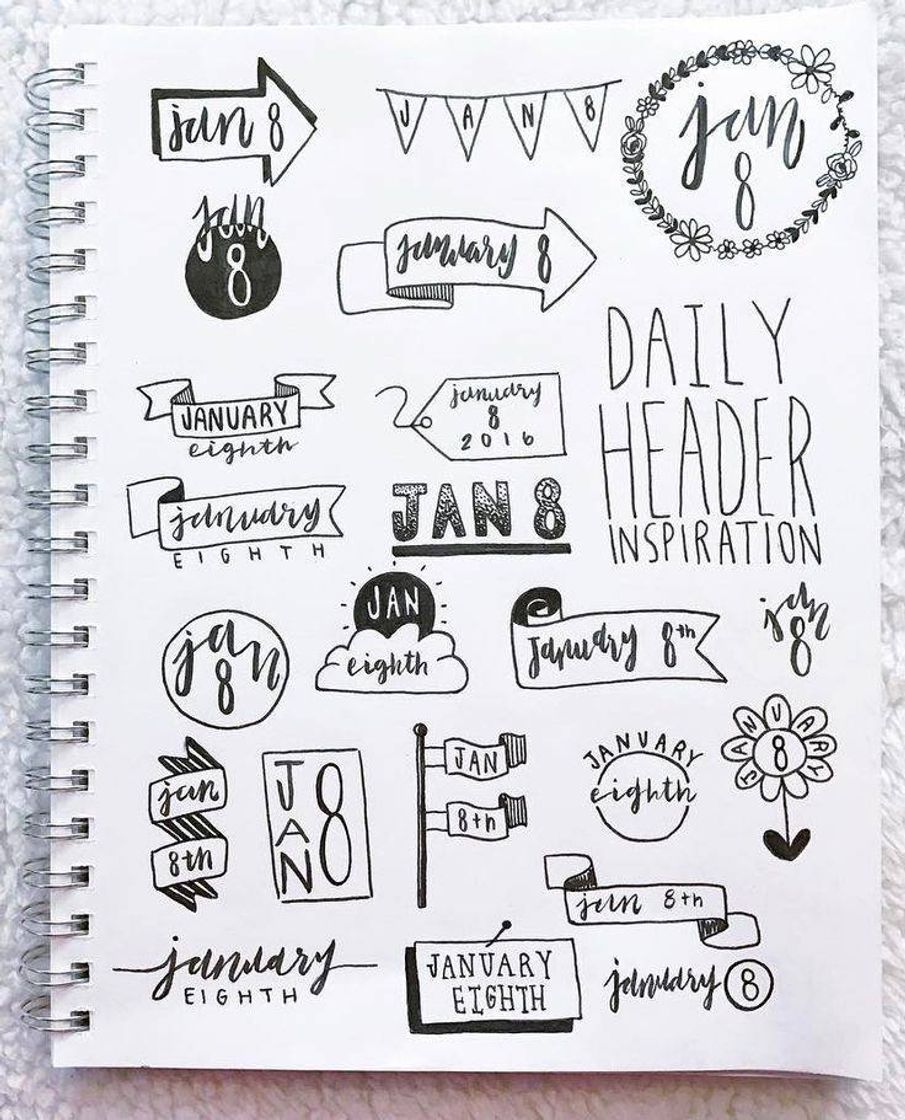 jan 8
J A N 8
jan
8
jan
8
january 8
DAILY
HEADER
INSPIRATION
JANUARY
eighth
january
8
2016
january
EIGHTH
JAN 8
jan
8
JAN
eighth
January 8th
jan
8
jan
8th
JAN
8
JAN
8th
JANUARY
eighth
JANUARY
8
jan 8th
january
EIGHTH
JANUARY
EIGHTH
january 8